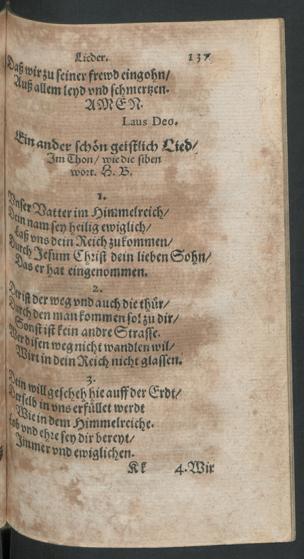 Lieder. 137
Daß wir zu seiner frewd eingohn/
Auß allem leyd vnd schmertzen.
AMEN.
Laus Deo.
Ein ander schön geistlich Lied/
Im Thon/ wie die siben
wort. H. B.
1.
Vnser Vatter im Himmelreich/
Dein nam sey heilig ewiglich/
Laß vns dein Reich zukommen/
Durch Jesum Christ dein lieben Sohn/
Das er hat eingenommen.
2.
Der ist der weg vnd auch die thür/
Durch den man kommen sol zu dir/
Sonst ist kein andre Strasse.
Wer disen weg nicht wandlen wil/
Wirt in dein Reich nicht glassen.
3.
Dein will gescheh hie auff der Erdt/
Derselb in vns erfüllet werdt
Wie in dem Himmelreiche.
Lob vnd ehre sey dir bereyt/
Jmmer vnd ewiglichen.
Kk 4. Wir